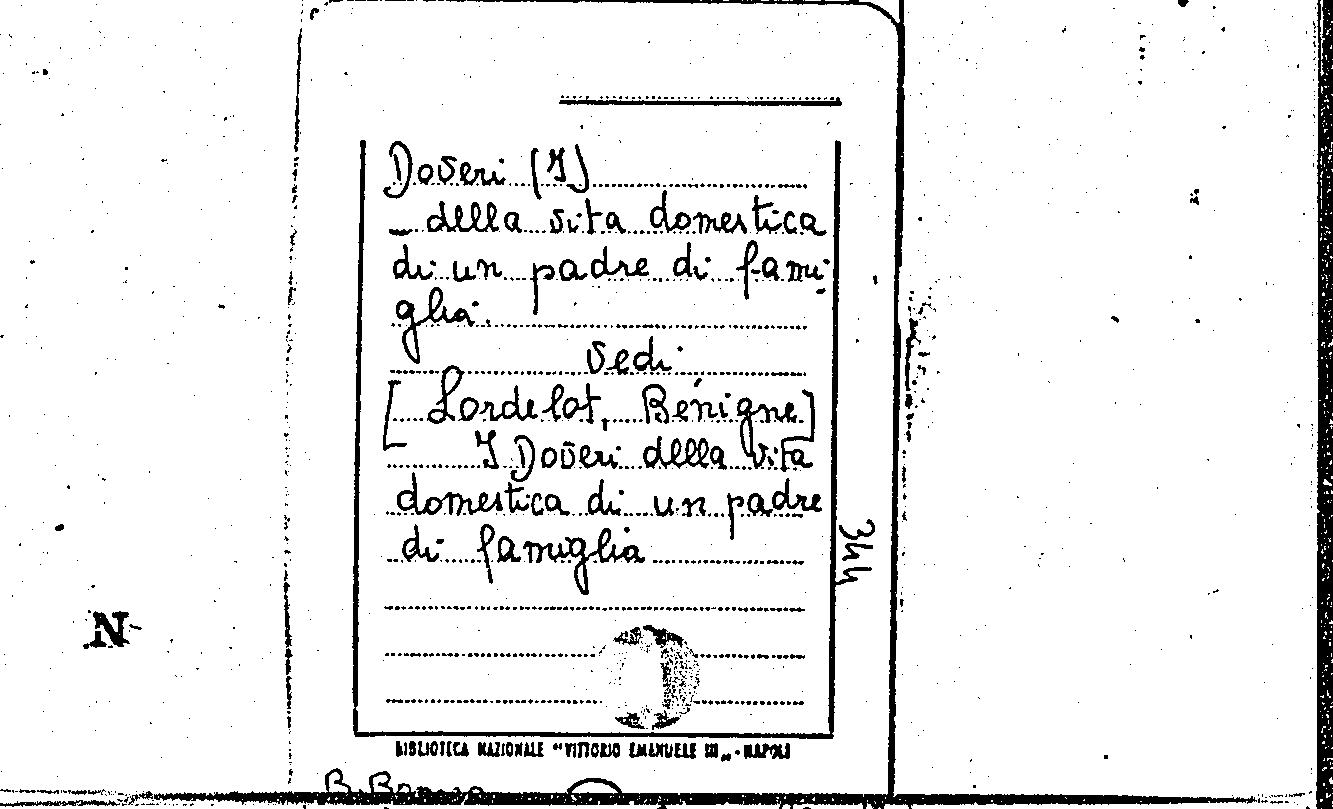 Doveri (I)
_ della vita domestica
di un padre di fami-
glia.
vedi
[Lordelot, Bénigne]
I Doveri della vita
domestica di un padre
di famiglia
344
N
BIBLIOTECA NAZIONALE "VITTORIO EMANUELE III„ - NAPOLI